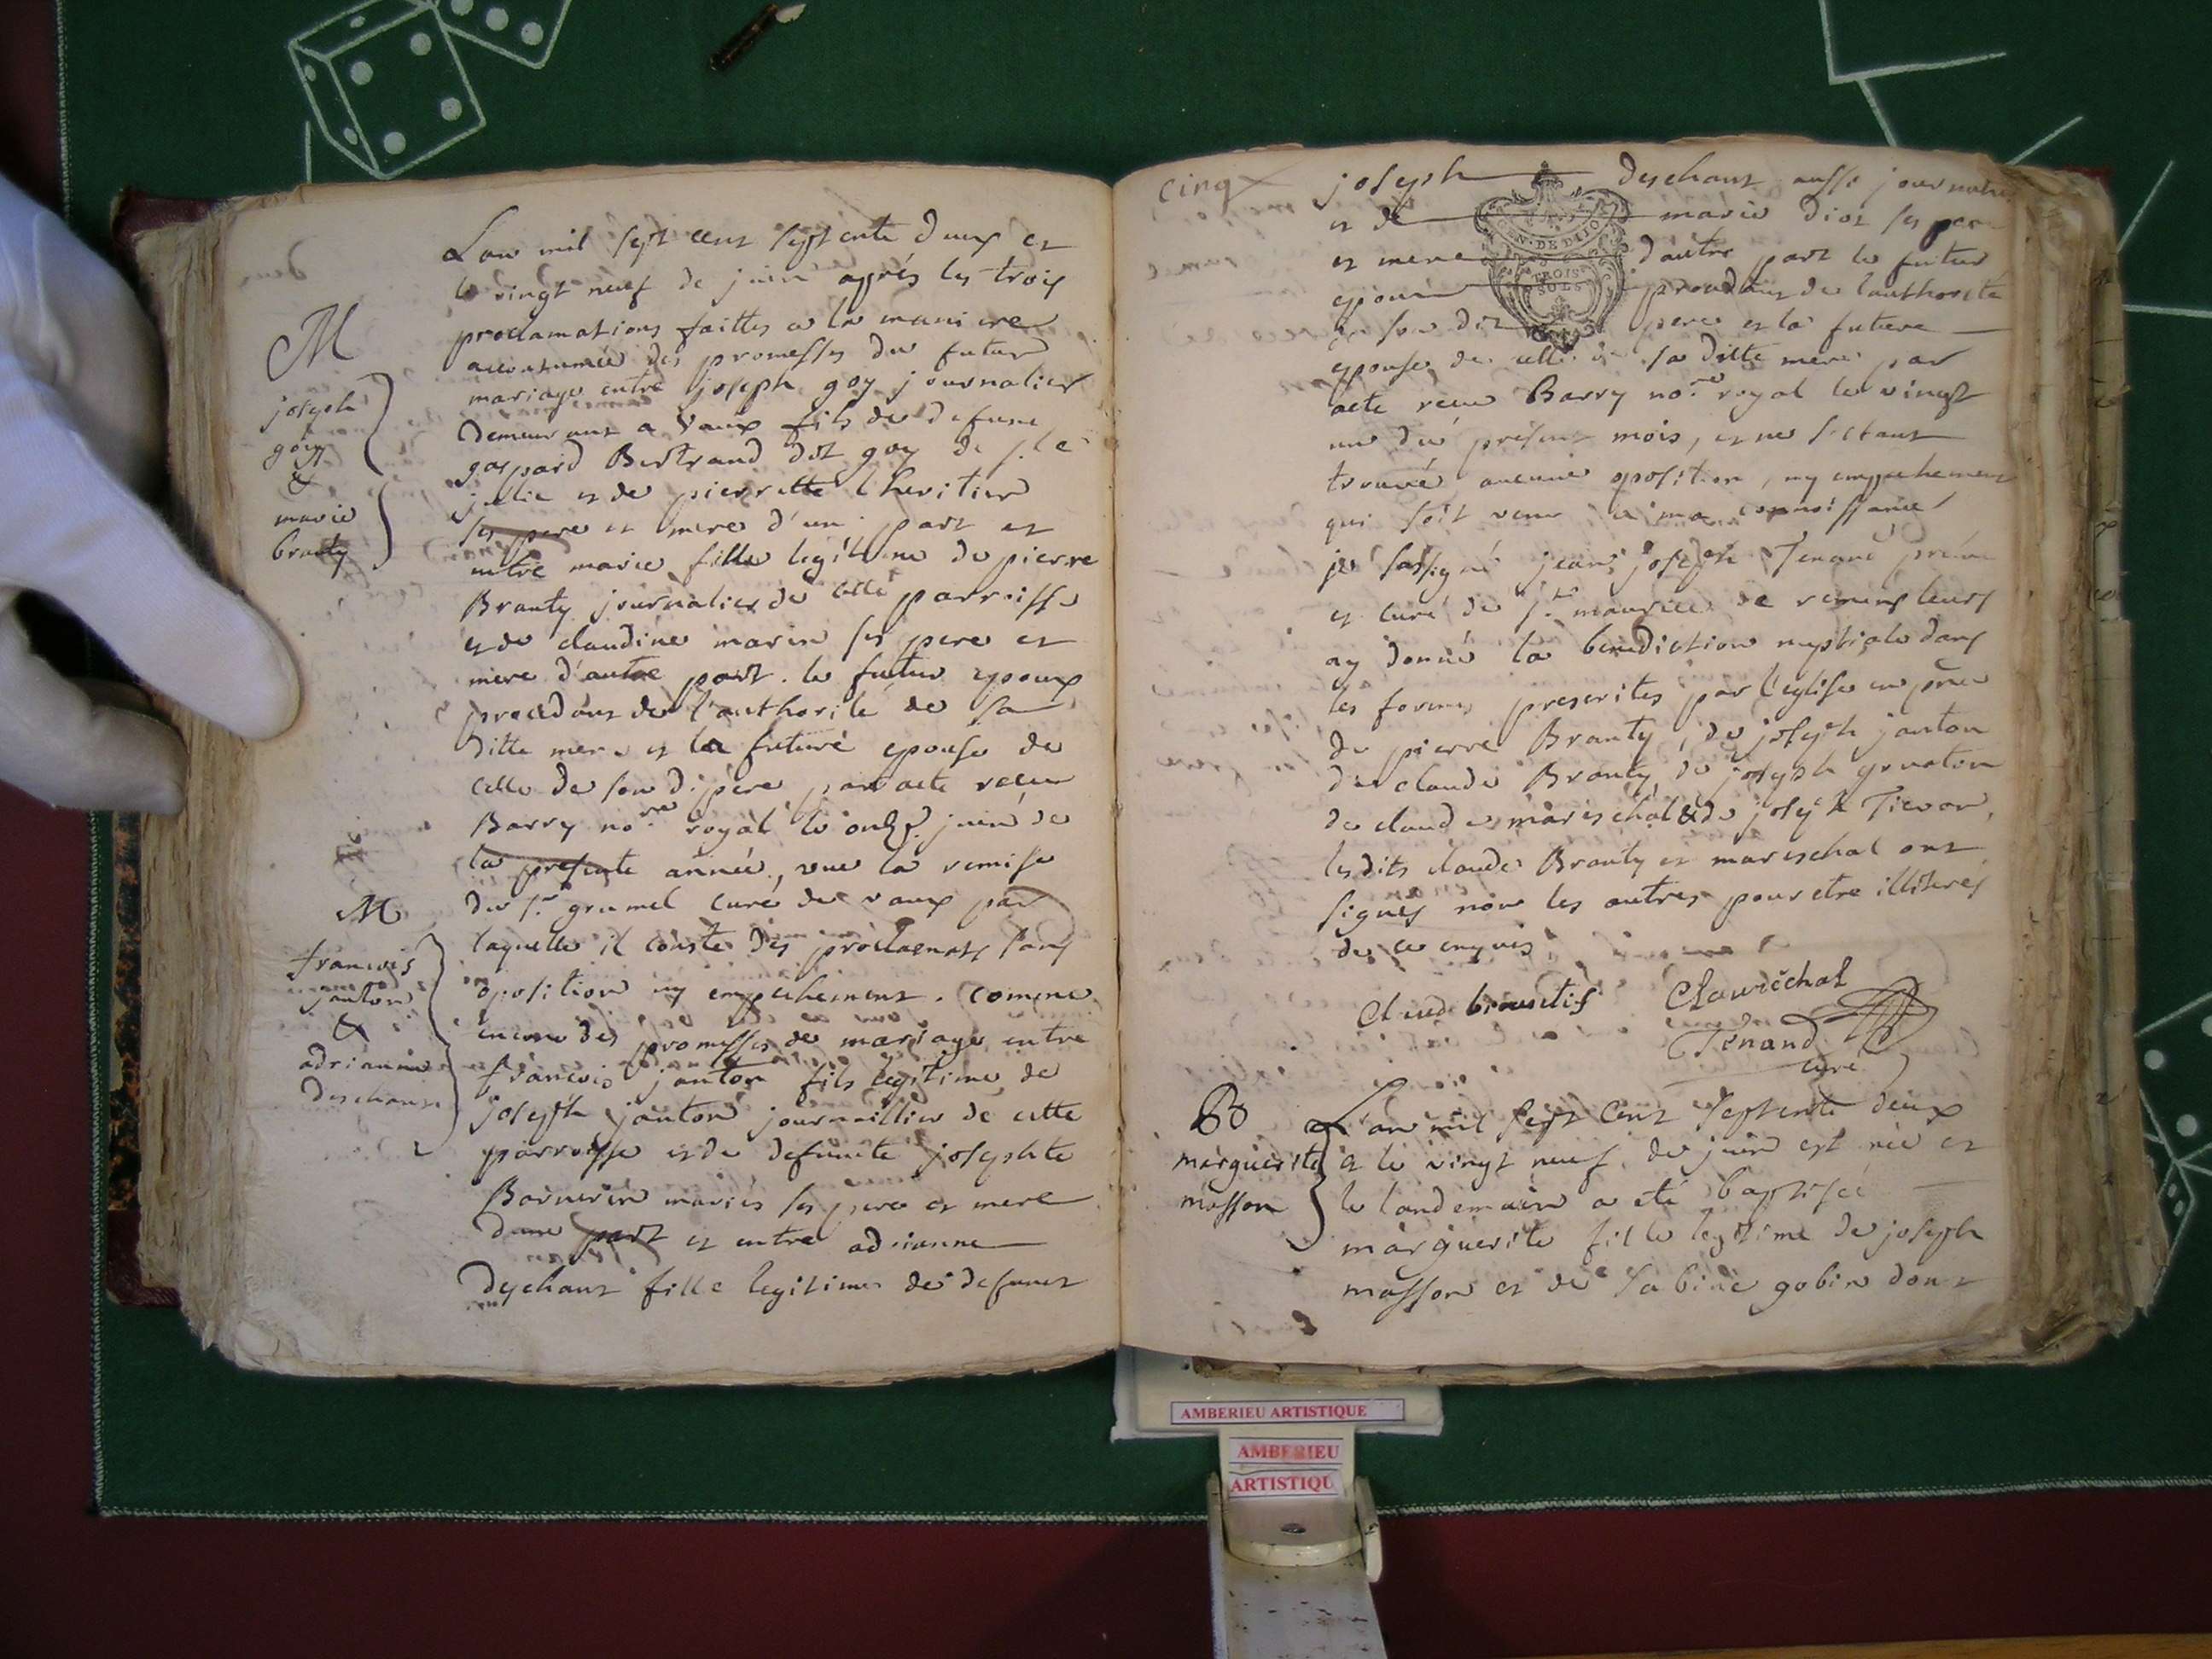 Lan mil sept cent septente deux et
le vingt neuf de juin après les trois
proclamations faittes a la maniere
accoutumée des promesses du futur
mariage entre joseph goy journalier
demeurant a Vaux fils de defunt
gaspard Bertrand dit goy de
julie et de pierrette lheritier
ses pere et mere d'une part et
entre marie fille legitime de pierre
Branty journalier de cette parroisse
et de claudine marin ses pere et
mere d'autre part. le futur epoux
procedant de l'authorité de sa
ditte mere et la future epouse de
celle de son d. père par acte recu
Barry no.re royal le onze juin de
la presente année, vue la remise
du sr. grumel curé de vaux par
laquelle il conste des proclamats sans
oposition ny empechement. comme
encore des promesses de mariage entre
francois janton fils legitime de
joseph janton journaillier de cette
parroisse et de defunte josephte
Barnerin mariés ses pere et mere
dune part et entre adrianne
deschant fille legitime de defunct
M
joseph
goy
&
marie
branty
M
francois
janton
&
adrianne
deschant
cinq
joseph deschant aussi journalier
et de marie diot ses pere
et mere d'autre part le futur
epoux procedant de lauthorité
de son dit pere et la future
epouse de celle de sa ditte mere par
acte recu Barry no.re royal le vingt
un du présent mois, et ne s'etant
trouvé aucune oposition, ny empechement
qui soit venu a ma connoissance
je sussigné jean joseph Tenand prêtre
et curé de st. maurice de remens leurs
ay donné la benediction nuptiale dans
les formes prescrites par l'eglise en prnce
de pierre Branty, de joseph janton
de claude Branty, de joseph gruaton
de claude mareschal & de joseph Tievon,
lesdits claude Branty et mareschal ont
signes non les autres pour etre illiteres
de ce enquis
GEN. DE DIJON
TROIS
SOLS
Claude brantis
C Maréchal
Tenand
curé
B
marguerite
masson
L'an mil sept cent septente deux
et le vingt neuf de juin est née et
le landemain a eté baptisée
marguerite fille legitime de joseph
masson et de sabine gobin dont
AMBERIEU ARTISTIQUE
AMBERIEU
ARTISTIQU